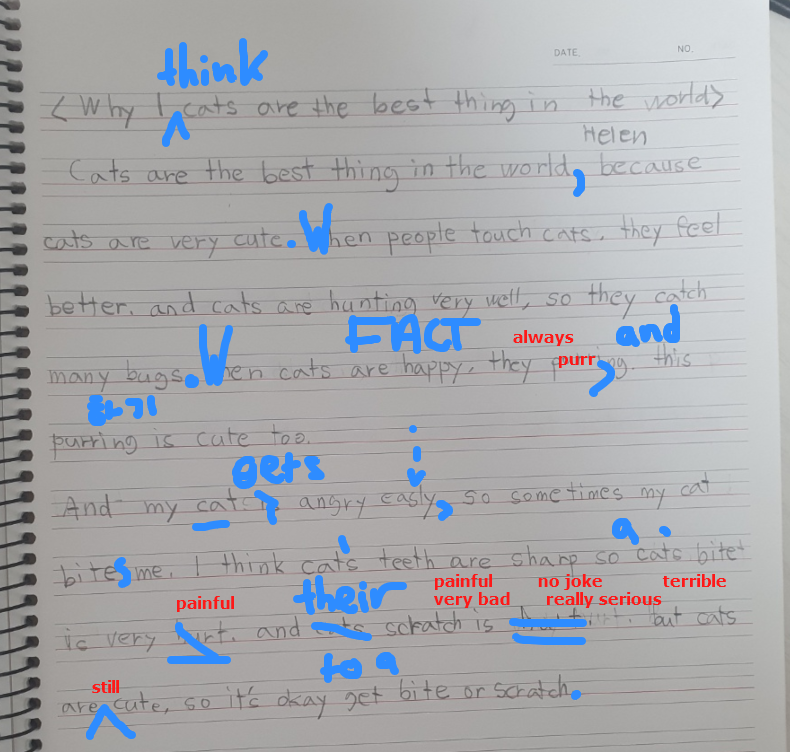 DATE. NO.
think
< Why I cats are the best thing in the world>
Helen
Cats are the best thing in the world, because
cats are very cute. When people touch cats. they feel
better. and cats are hunting very well, so they catch
FACT always and
many bugs. When cats are happy, they purring. this
purr
purring is cute too.
gets i
And my cat is angry easly, so sometimes my cat
a
bites me. I think cat's teeth are sharp so cat's bite
painful their painful no joke terrible
very bad really serious
is very hurt. and cats scratch is but cats
still to a
are cute, so it's okay get bite or scratch.